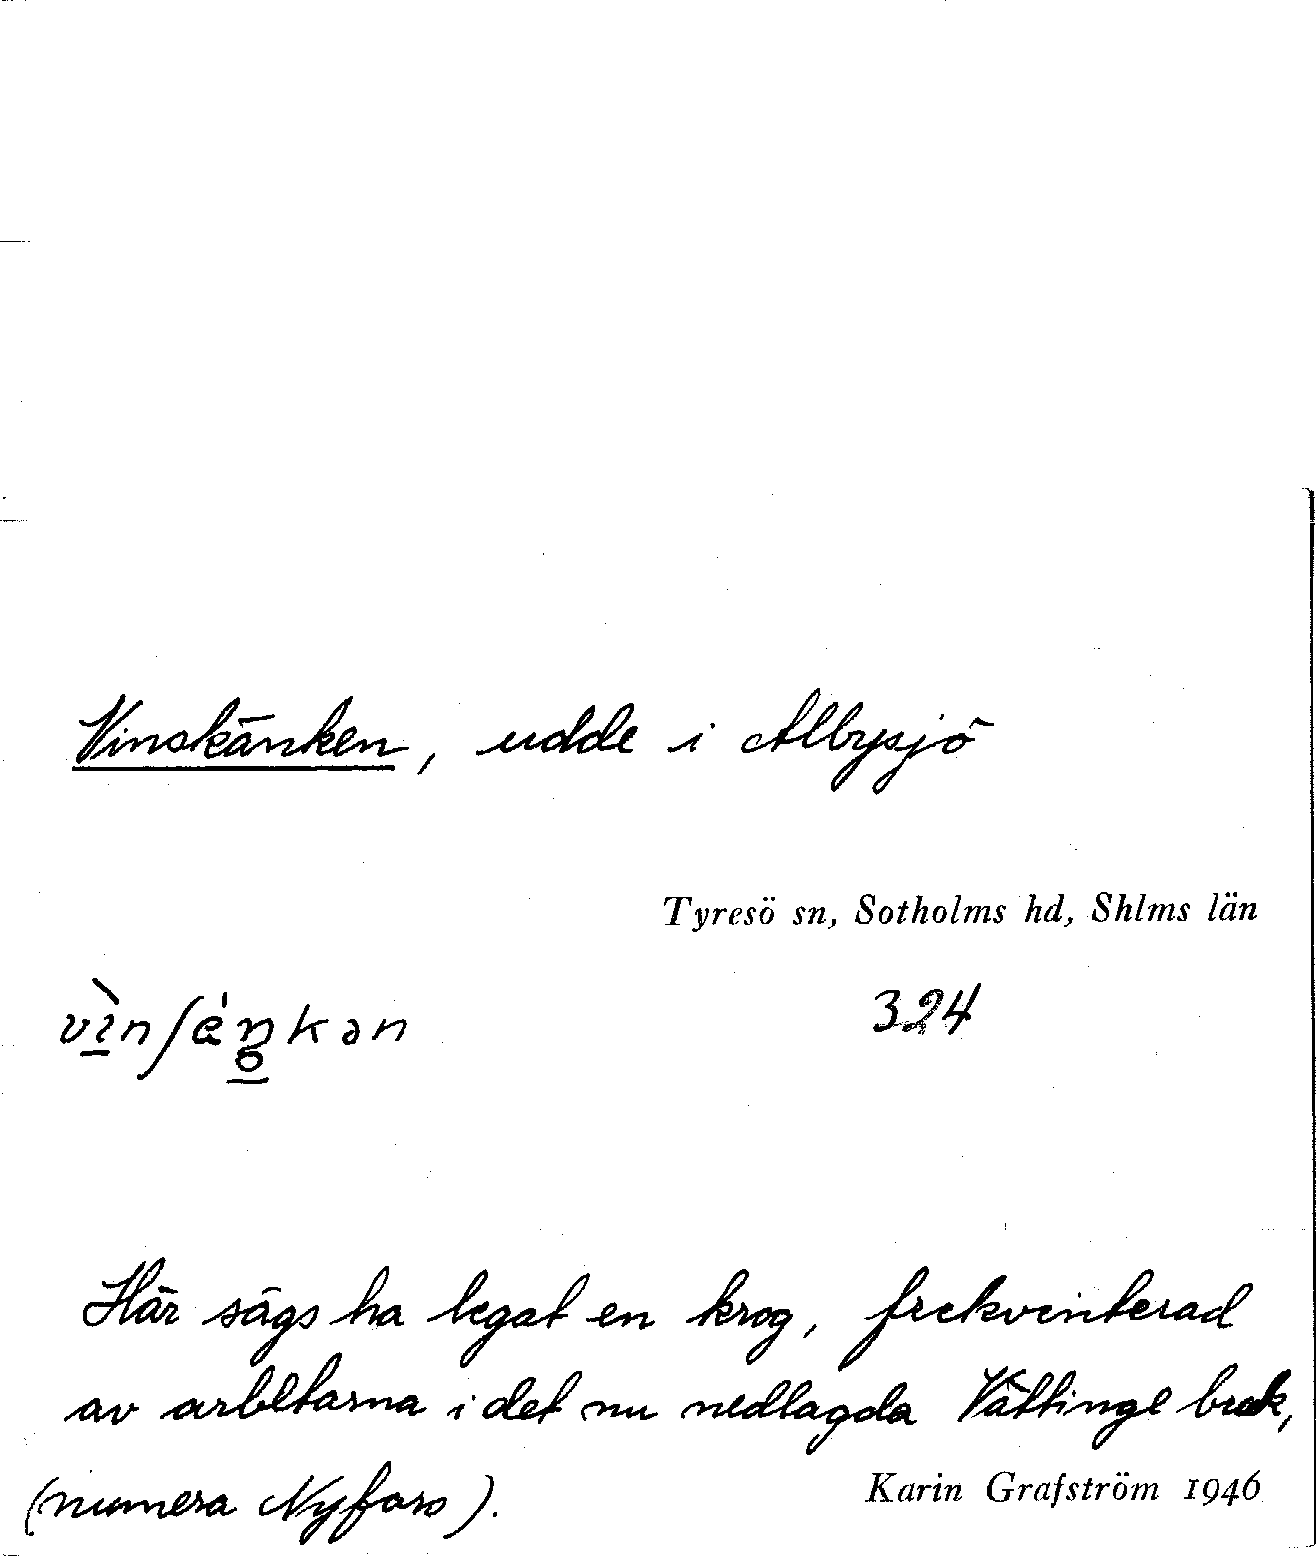 Vinskänken, udde i Albysjö
Tyresö sn, Sotholms hd, Shlms län
vìnʃéŋkən
324
Här sägs ha legat en krog, frekventerad
av arbetarna i det nu nedlagda Vättinge bruk,
(numera Nyfors).
Karin Grafström 1946